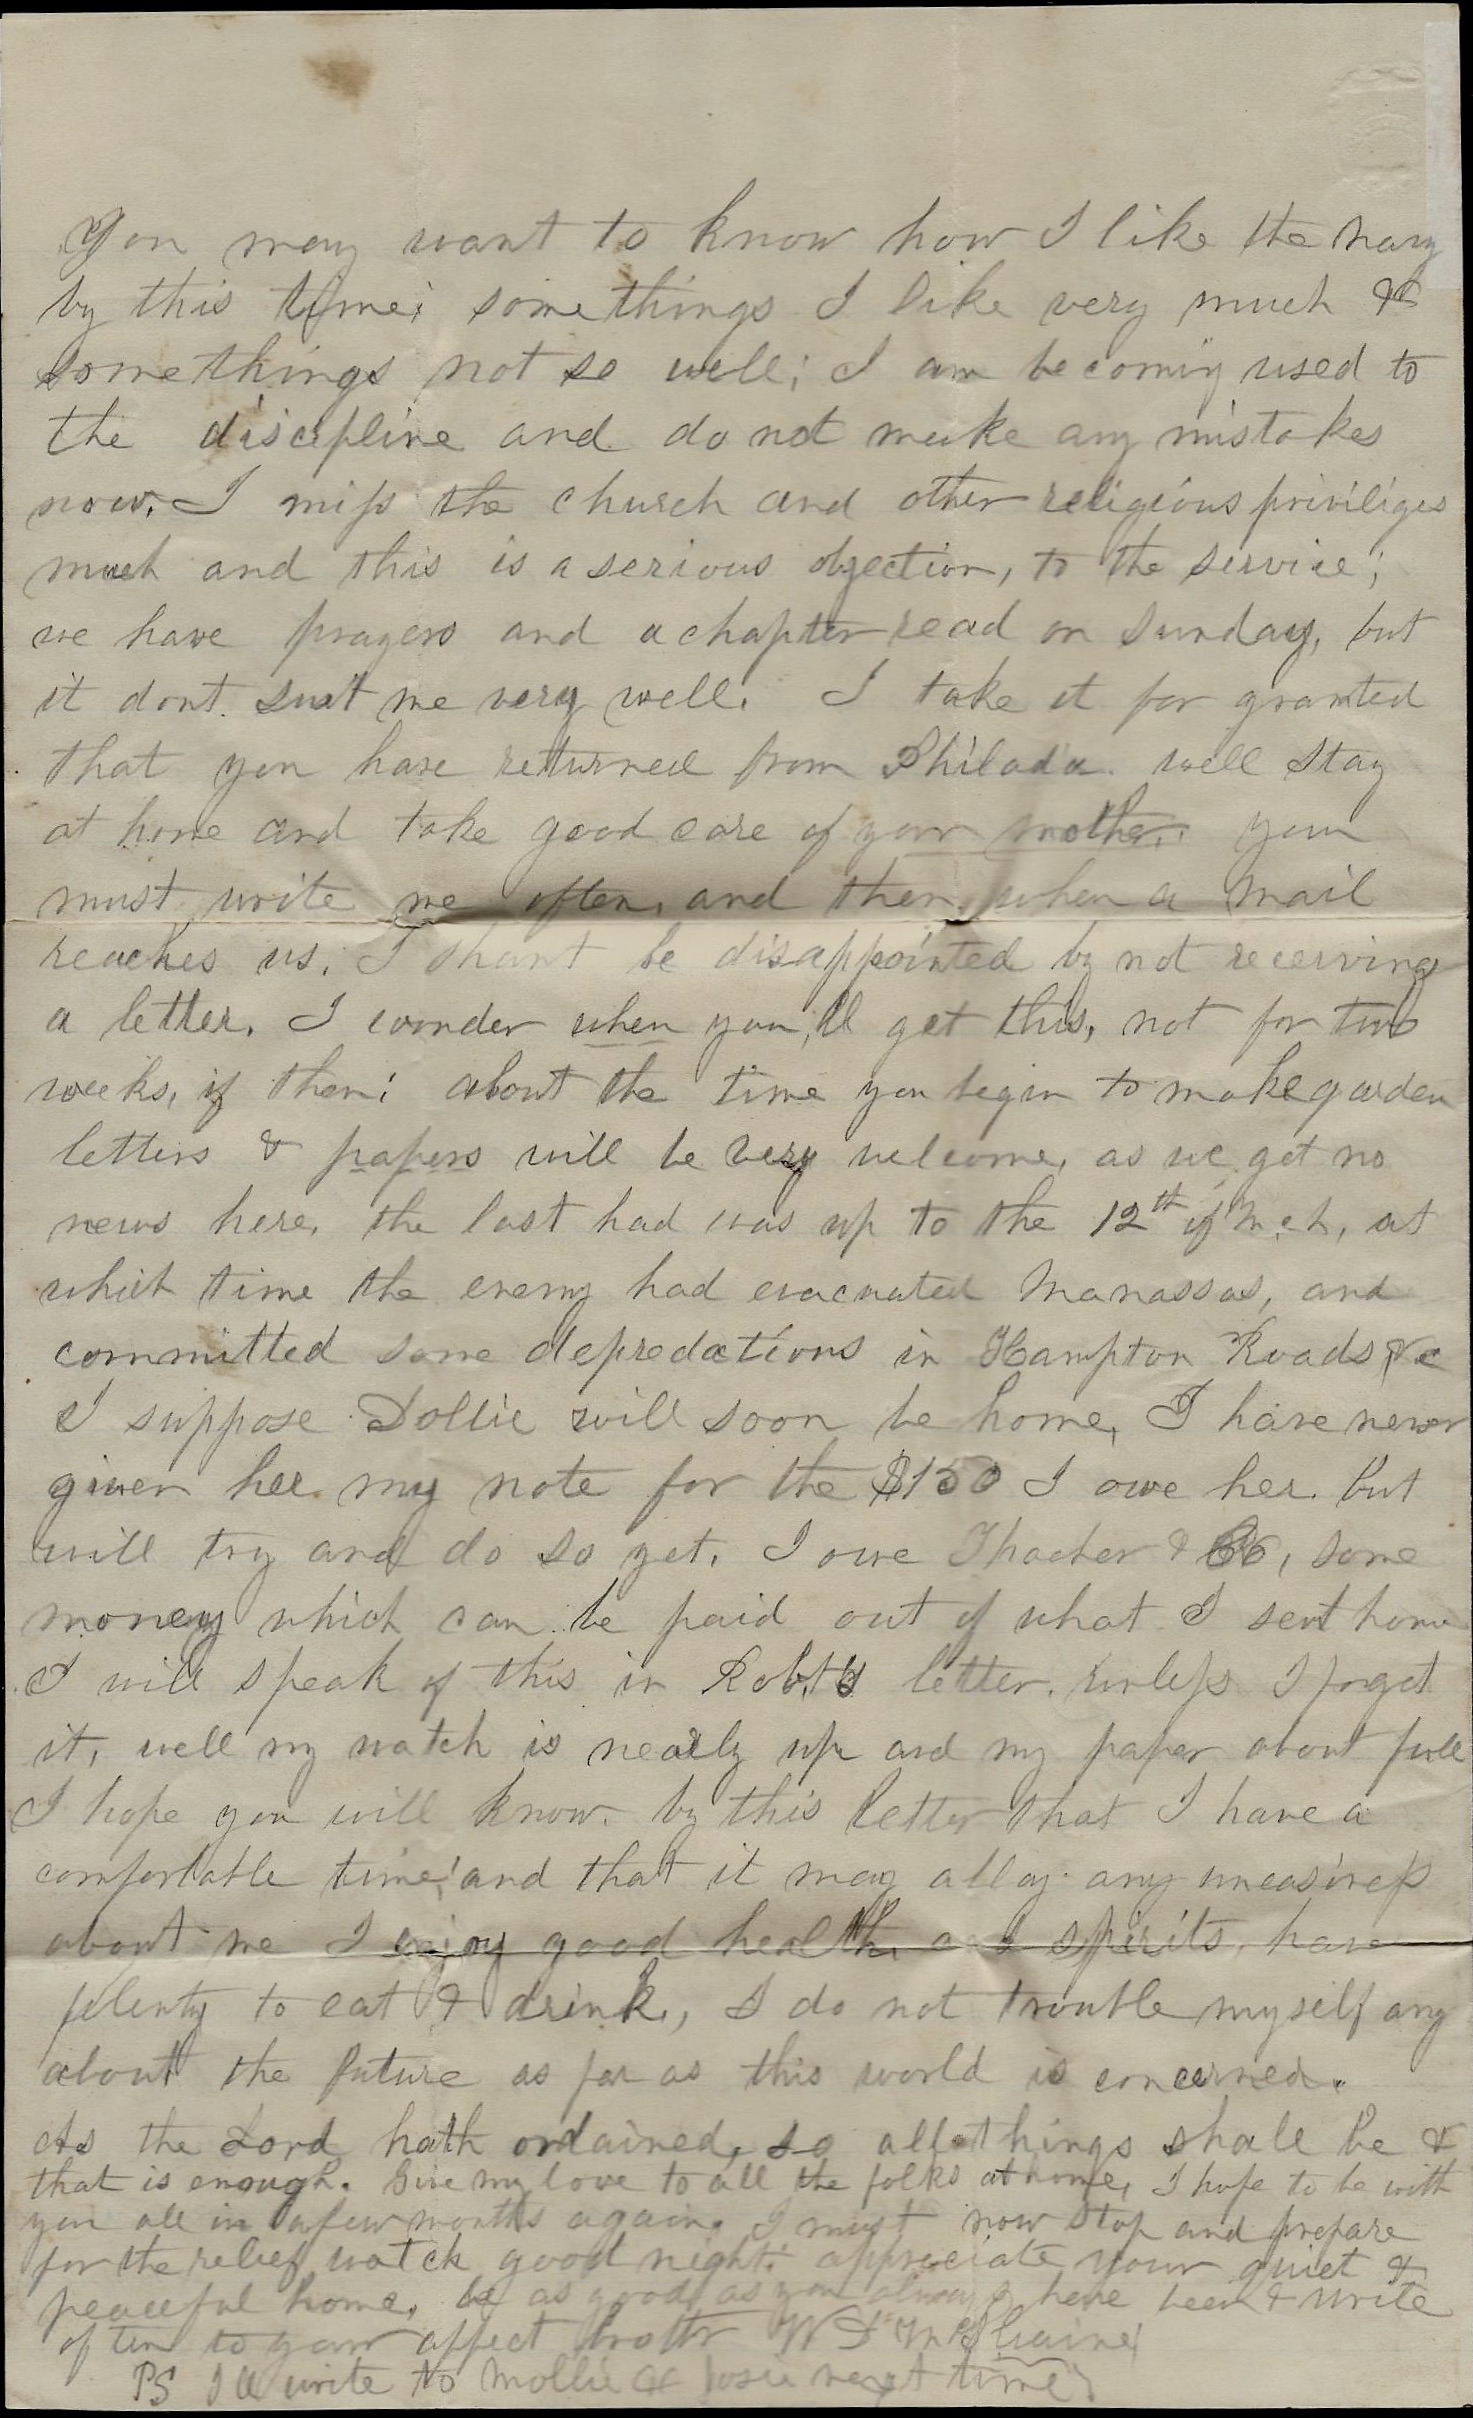 You may want to know how I like the navy
by this time; somethings I like very much &
somethings not so well; I am becoming used to
the discipline and do not make any mistakes
now. I miss the church and other religious priviliges
much and this is a serious objection, to the service;
we have prayers and a chapter read on Sunday, but
it dont suit me very well. I take it for granted
that you have returned from Philada. well stay
at home and take good care of your mother. you
must write me often, and then, when a mail
reaches us, I shant be disappointed by not receiving
a letter. I wonder when you,ll get this, not for two
weeks, if then; about the time you begin to make garden
letters & papers will be very welcome, as we get no
news here, the last had was up to the 12th of Mch, at
which time the enemy had evacuated Manassas, and
committed some depredations in Hampton Roads &c
I suppose Dollie will soon be home, I have never
given her my note for the $150 I owe her. but
will try and do so yet. I owe Thacher & Co, some
money which can be paid out of what I sent home
I will speak of this in Robt's letter, unless I forget
it, well my watch is nearly up and my paper about full
I hope you will know by this letter that I have a
comfortable time; and that it may allay any uneasiness
about me I enjoy good health, and spirits, have
plenty to eat & drink, I do not trouble myself any
about the future as far as this world is concerned.
As the Lord hath ordained, so all things shall be &
that is enough. Give my love to all the folks at home, I hope to be with
you all in a few months again. I must now stop and prepare
for the relief watch good night. appreciate your quiet &
peaceful home, be as good as you always have been & write
often to your affect brother W
PS I ll write to Mollie & Josie next time